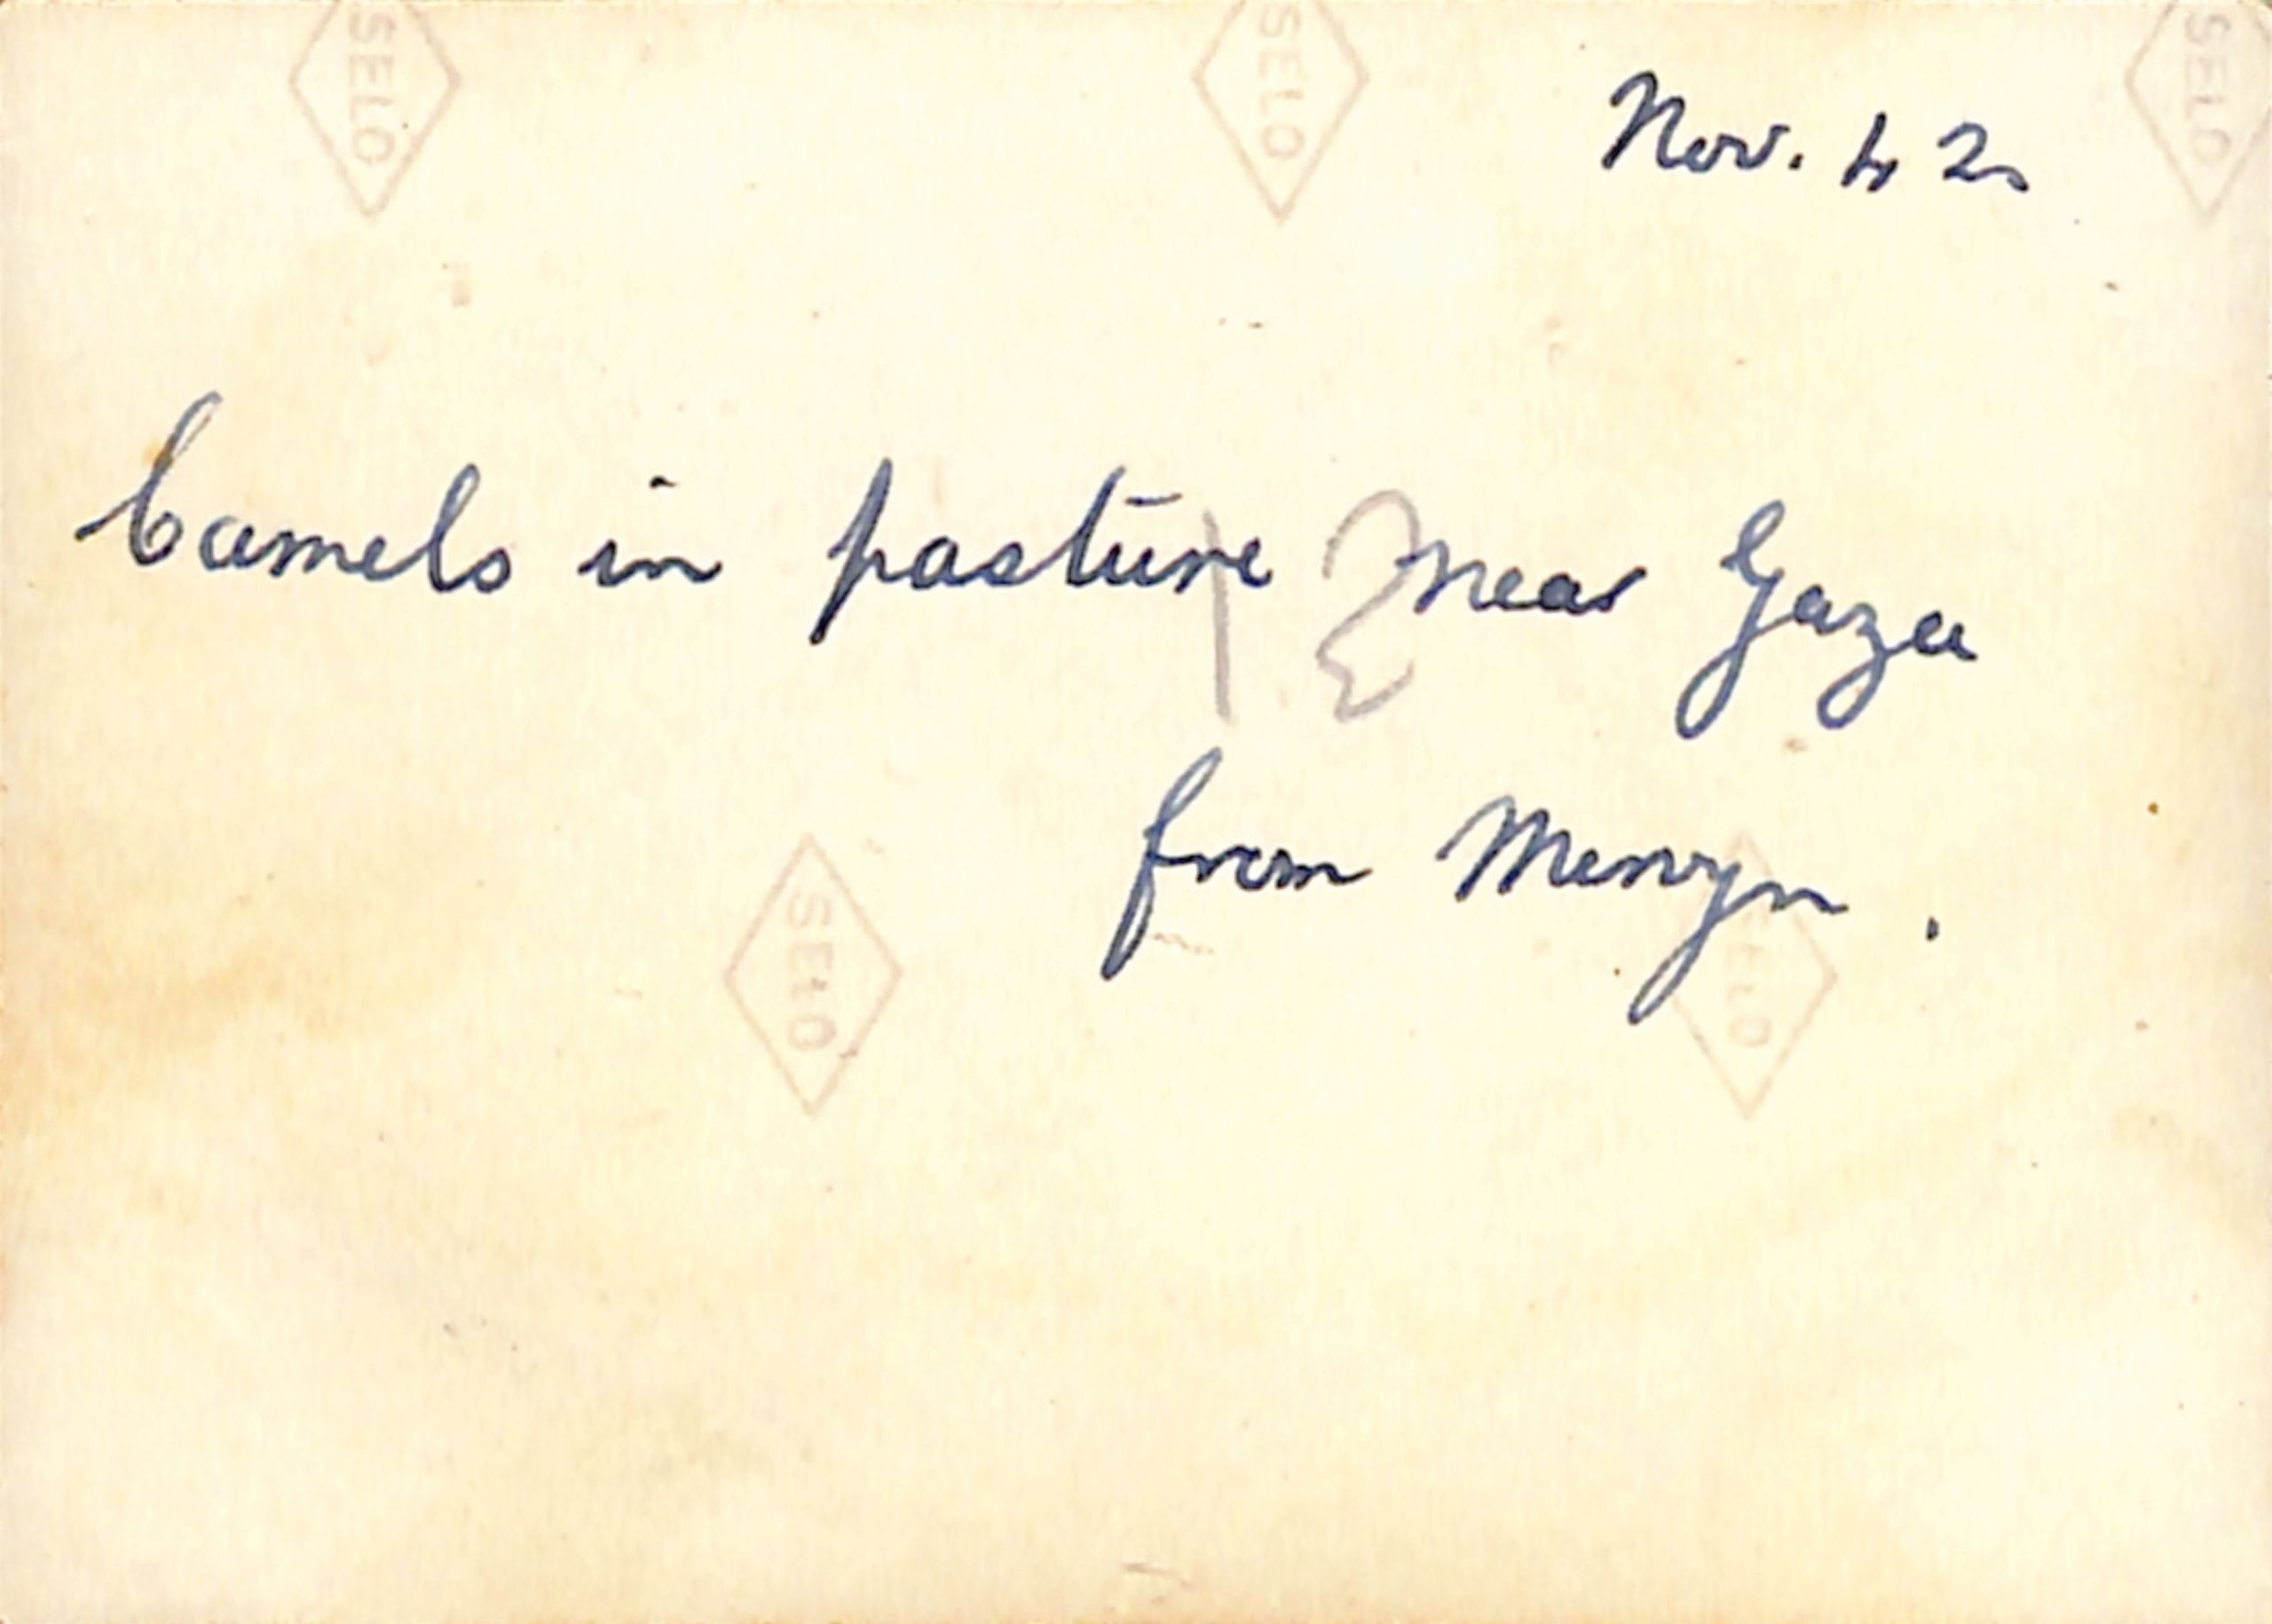 SELO SELO SELO
Nov. 42
Camels in pasture near Gaza
12
from Mervyn.
SELO SELO